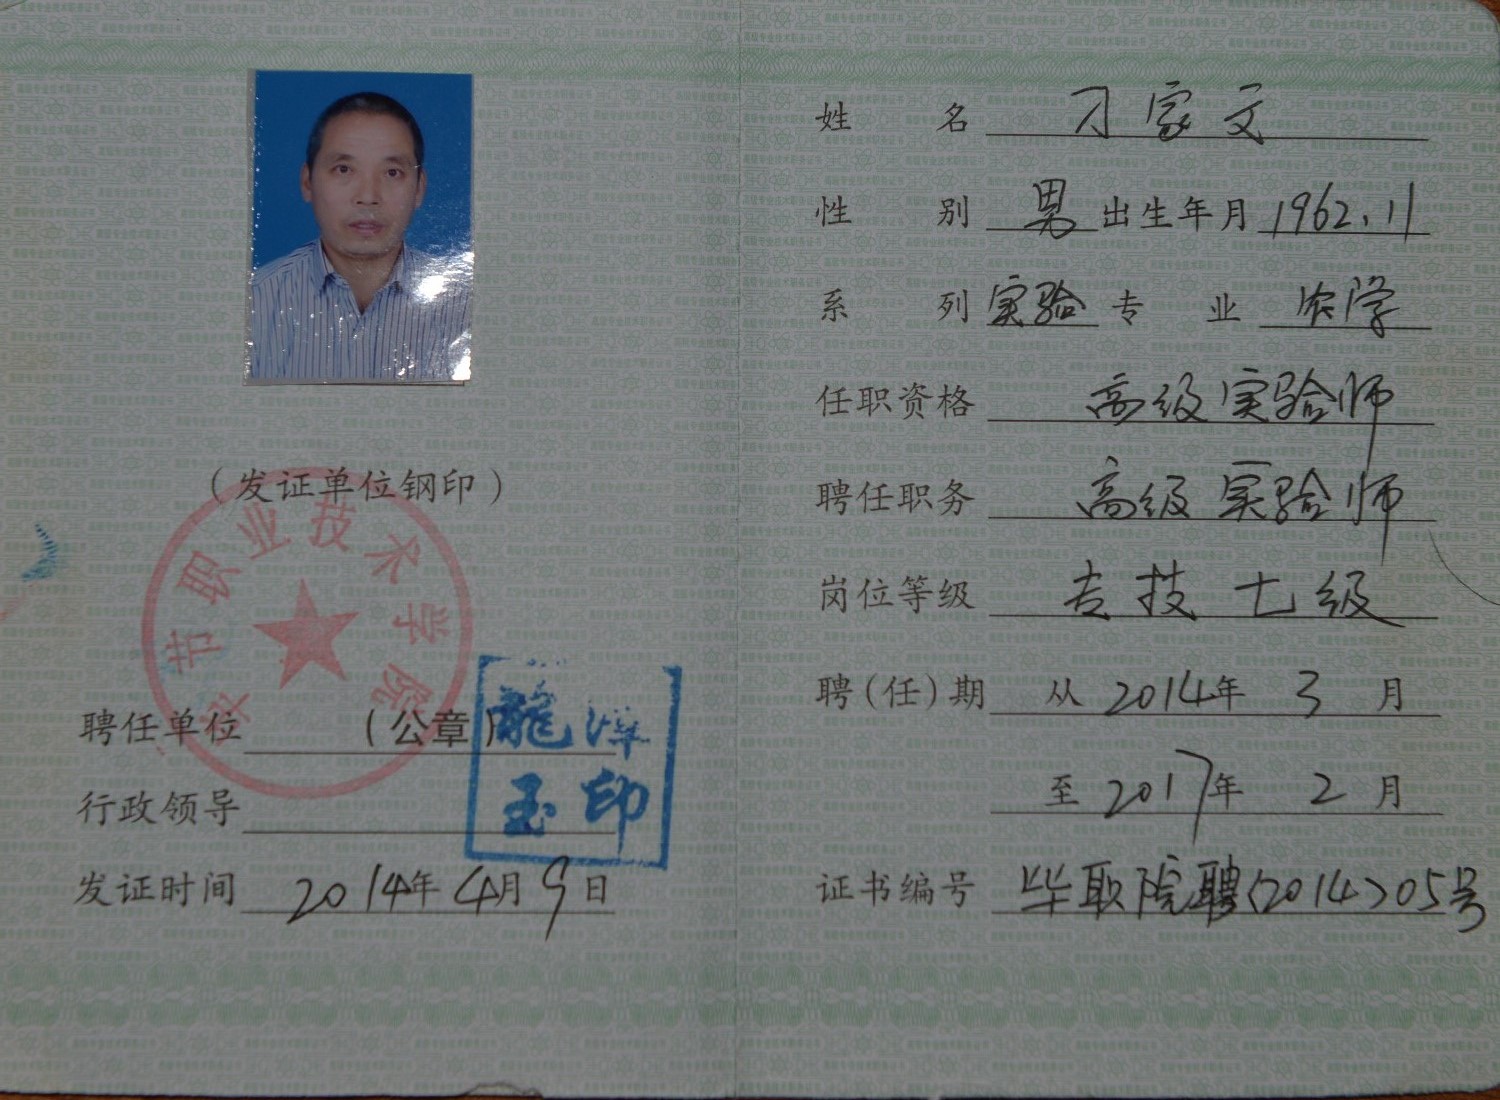 （发证单位钢印）
毕节职业技术学院
聘任单位（公章）
龍泽
玉印
行政领导
发证时间 2014年4月9日
姓名 刁家文
性别 男 出生年月 1962.11
系列 实验 专业 农学
任职资格 高级实验师
聘任职务 高级实验师
岗位等级 专技七级
聘（任）期 从 2014年 3 月
至 2017年 2 月
证书编号 毕职院聘〈2014〉05号